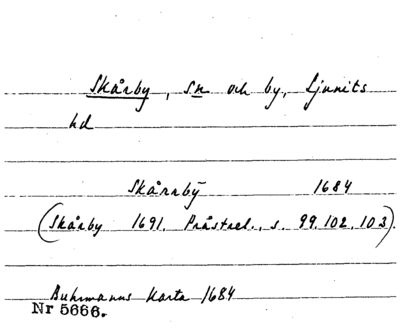 Skårby, sn och by, Ljunits
hd
Skårrbÿ 1684
(Skårby 1691. Prästrel., s. 99. 102. 103).
Buhrmanns karta 1684
Nr 5666.